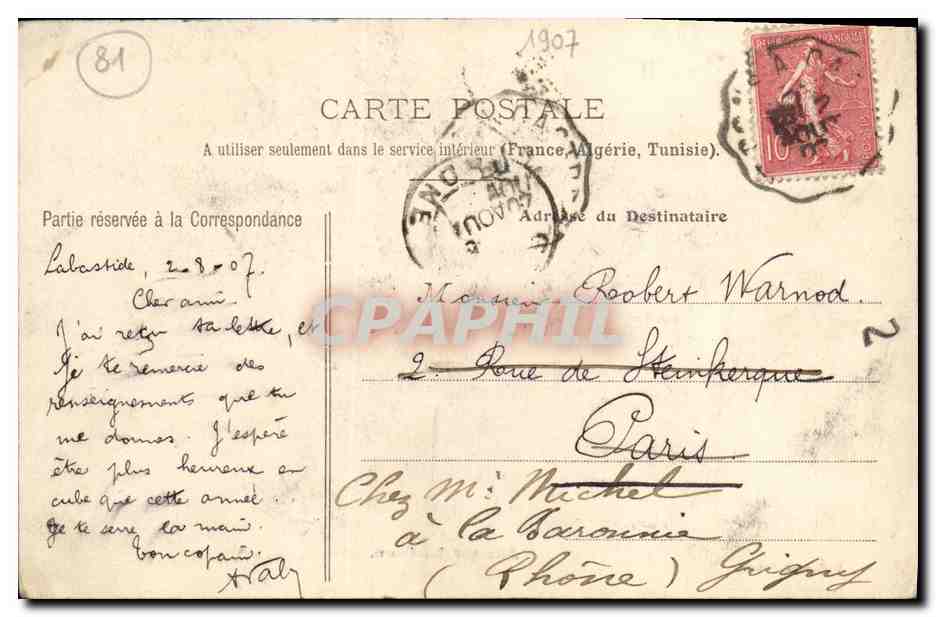 81
1907
CARTE POSTALE
A utiliser seulement dans le service intérieur (France, Algérie, Tunisie).
Partie réservée à la Correspondance
Adresse du Destinataire
Labastide, 2-8-07.
Cher ami.
J'ai reçu ta lettre, et
je te remercie des
renseignements que tu
me donnes. J'espère
être plus heureux en
cube que cette année.
Je te serre la main.
Ton copain.
Monsieur Roobert Warnod.
2. Rue de Steinkerque
Paris
Chez Mr Michel
à la Baronnie
(Rhône) Grigny
2
CPAPHIL
10
AOUT